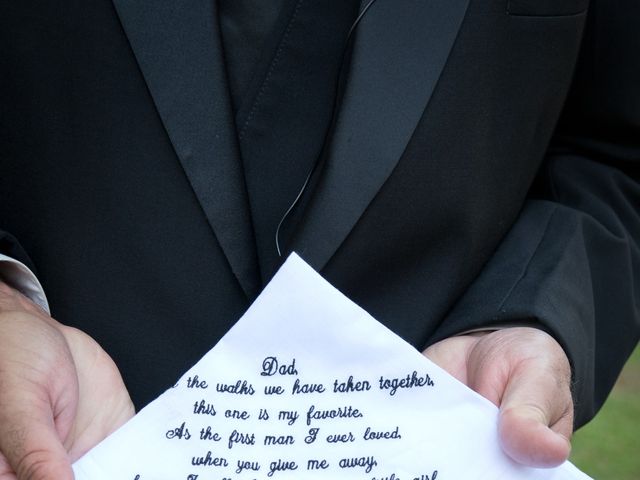 Dad,
the walks we have taken together,
this one is my favorite.
As the first man I ever loved,
when you give me away,
girl